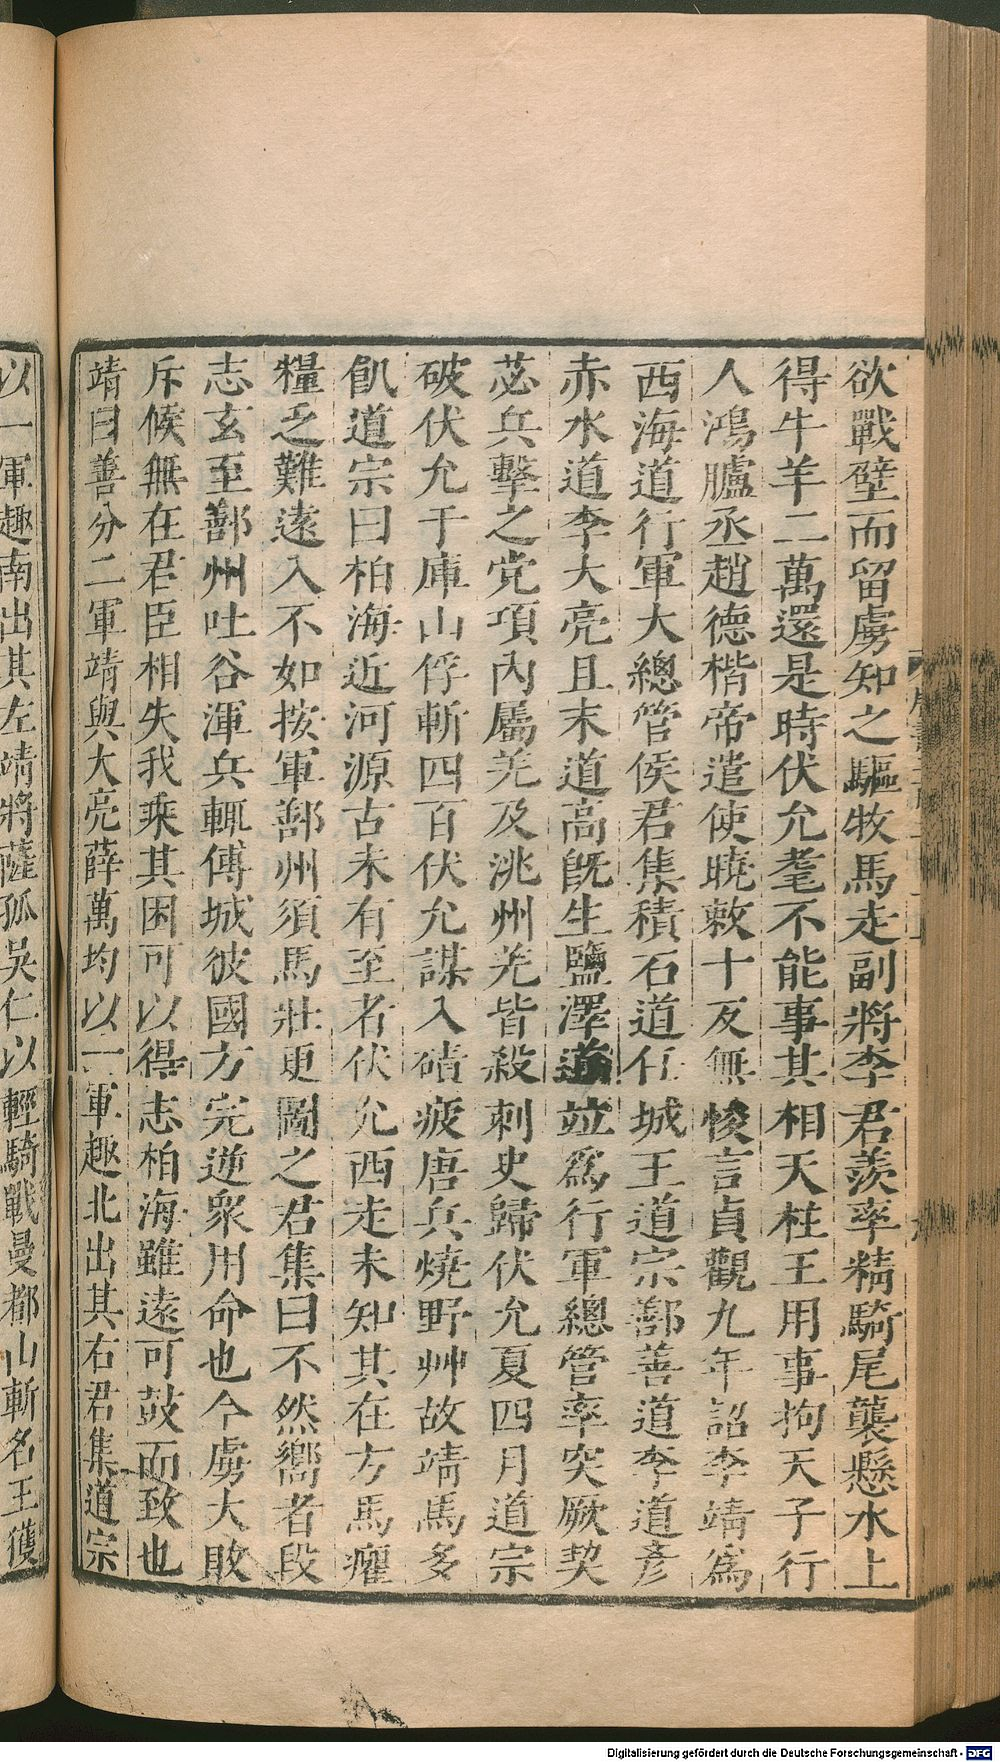 欲戰壁而留虜知之驅牧馬走副將李君羨率精騎尾襲懸水上
得牛羊二萬還是時伏允耄不能事其相天柱王用事拘天子行
人鴻臚丞趙德楷帝遣使曉敕十反無悛言貞觀九年詔李靖爲
西海道行軍大總管侯君集積石道任城王道宗鄯善道李道彥
赤水道李大亮且末道高旣生鹽澤道竝爲行軍總管率突厥契
苾兵擊之党項內屬羌及洮州羌皆殺刺史歸伏允夏四月道宗
破伏允于庫山俘斬四百伏允謀入磧疲唐兵燒野艸故靖馬多
飢道宗曰柏海近河源古未有至者伏允西走未知其在方馬癯
糧乏難遠入不如按軍鄯州須馬壯更圖之君集曰不然嚮者段
志玄至鄯州吐谷渾兵輒傅城彼國方完逆衆用命也今虜大敗
斥候無在君臣相失我乘其困可以得志柏海雖遠可鼓而致也
靖曰善分二軍靖與大亮薛萬均以一軍趣北出其右君集道宗
以一軍趣南出其左靖將薩孤吳仁以輕騎戰曼都山斬名王獲
Digitalisierung gefördert durch die Deutsche Forschungsgemeinschaft - DFG